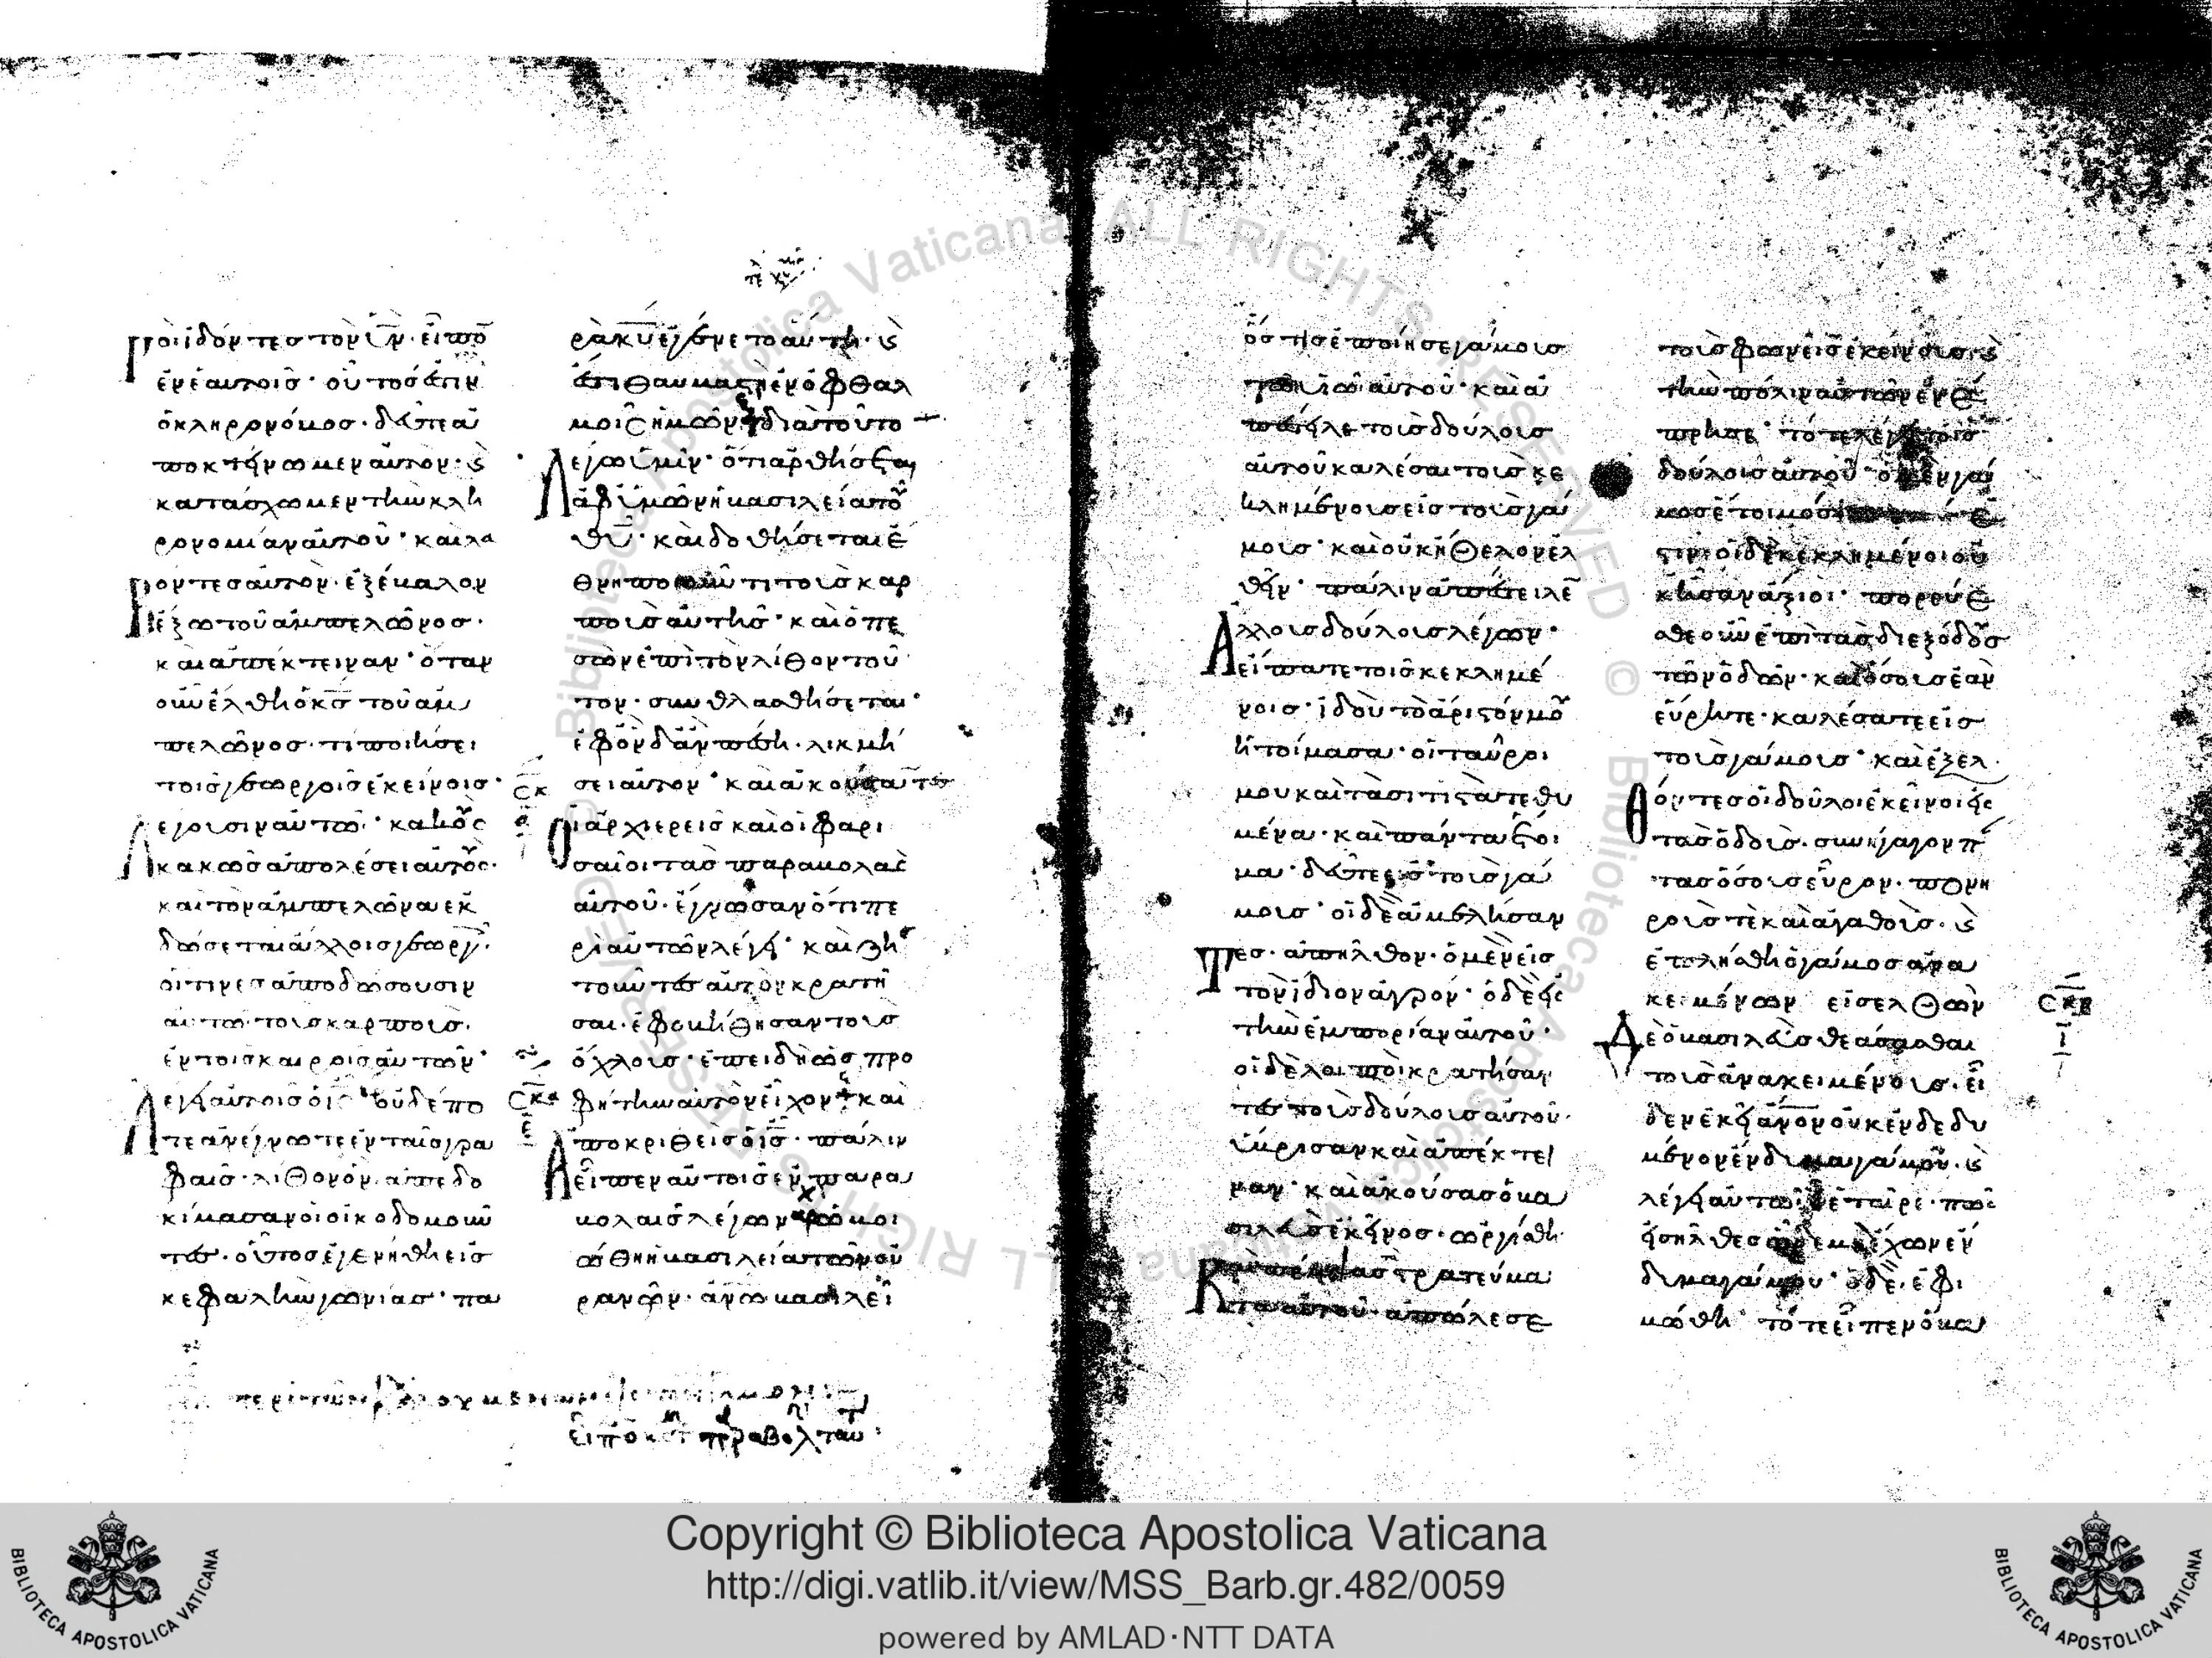 γοὶ ἰδόντες τὸν υ̅ν̅· εἶπο̅
ἐν ἑαυτοῖς· οὗτός ἐστιν
ὁ κληρονόμος· δεῦτε ἀ
ποκτείνωμεν αὐτόν· ϗ
κατάσχωμεν τὴν κλη
ρονομίαν αὐτοῦ· καὶ λα
βόντες αὐτὸν· ἐξέβαλον
ἔξω τοῦ ἀμπελῶνος·
καὶ ἀπέκτειναν· ὅταν
οὖν ἔλθη ὁ κ̅ς̅ τοῦ ἀμ
πελῶνος· τί ποιήσει
τοῖς γεωργοῖς ἐκείνοις·
λέγουσιν αὐτῶ· κακοὺς
κακῶς ἀπολέσει αὐτούς·
καὶ τὸν ἀμπελῶνα ἐκ
δώσεται ἄλλοις γεωργ·
οἵτινες ἀποδώσουσιν
αὐτῶ τοὺς καρποὺς
ἐν τοῖς καιροῖς αὐτῶν·
λέγει αὐτοῖς ὁ ι̅ς̅· οὐδέπο
τε ἀνέγνωτε ἐν ταῖς γρα
φαῖς· λίθον ὃν ἀπεδο
κίμασαν οἱ οἰκοδομοῦν
τες· οὗτος ἐγενήθη εἰς
κεφαλὴν γωνίας· πα
ρὰ κ̅υ̅ ἐγένετο αὕτη· ϗ
ἔστι θαυμαστὴ ἐν ὀφθαλ
μοῖς ἡμῶν· διὰ τοῦτο
λέγω ὑμῖν· ὅτι ἀρθήσεται
ἀφ ὑμῶν ἡ βασιλεία τοῦ
θ̅υ̅· καὶ δοθήσεται ἔ
θνει ποιοῦντι τοὺς καρ
ποὺς αὐτῆς· καὶ ὁ πε
σὼν ἐπὶ τὸν λίθον τοῦ
τον· συνθλασθήσεται·
ἐφ ὃν δ ἂν πέση· λικμή
σει αὐτόν· καὶ ἀκούσαντες
οἱ ἀρχιερεῖς καὶ οἱ φαρι
σαῖοι τὰς παραβολὰς
αὐτοῦ· ἔγνωσαν ὅτι πε
ρὶ αὐτῶν λέγει· καὶ ζη
τοῦντες αὐτὸν κρατῆ
σαι· ἐφοβήθησαν τοὺς
ὄχλους· ἐπειδὴ ὡς προ
φήτην αὐτὸν εἶχον· καὶ
ἀποκριθεὶς ὁ ι̅ς̅· πάλιν
εἶπεν αὐτοῖς ἐν παρα
βολαῖς λέγων· ὡμοι
ώθη ἡ βασιλεία τῶν οὐ
ρανῶν· ἀν̅ω βασιλεῖ
ὅστις ἐποίησε γάμους
τῶ υἱῶ αὐτοῦ· καὶ ἀ
πέστειλε τοὺς δούλους
αὐτοῦ καλέσαι τοὺς κε
κλημένους εἰς τοὺς γά
μους· καὶ οὐκ ἤθελον ἐλ
θεῖν· πάλιν ἀπέστειλεν
ἄλλους δούλους λέγων·
εἴπατε τοῖς κεκλημέ
νοις· ἰδοὺ τὸ ἄριστόν μου
ἡτοίμασα· οἱ ταῦροι
μου καὶ τὰ σιτιστὰ τεθυ
μένα· καὶ πάντα ἕτοι
μα· δεῦτε εἰς τοὺς γά
μους· οἱ δὲ ἀμελήσαν
τες· ἀπῆλθον· ὁ μὲν εἰς
τὸν ἴδιον ἀγρόν· ὁ δὲ εἰς
τὴν ἐμπορίαν αὐτοῦ·
οἱ δὲ λοιποὶ κρατήσαν
τες τοὺς δούλους αὐτοῦ·
ὕβρισαν καὶ ἀπέκτει
ναν· καὶ ἀκούσας ὁ βα
σιλεὺς ἐκεῖνος· ὠργίσθη·
καὶ πέμψας τὰ στρατεύμα
τα αὐτοῦ· ἀπώλεσε
τοὺς φονεῖς ἐκείνους· ϗ
τὴν πόλιν αὐτῶν ἐνέ
πρησε· τότε λέγει τοῖς
δούλοις αὐτοῦ· ὁ μὲν γά
μος ἕτοιμός ἐ
στιν· οἱ δὲ κεκλημένοι οὐ
κ ἦσαν ἄξιοι· πορεύε
σθε οὖν ἐπὶ τὰς διεξόδους
τῶν ὁδῶν· καὶ ὅσους ἐὰν
εὕρητε· καλέσατε εἰς
τοὺς γάμους· καὶ ἐξελ
θόντες οἱ δοῦλοι ἐκεῖνοι εἰς
τὰς ὁδοὺς· συνήγαγον π
τας ὅσους εὗρον· πονη
ροὺς τὲ καὶ ἀγαθούς· ϗ
ἐπλήσθη ὁ γάμος ἀνα
κειμένων εἰσελθὼν
δὲ ὁ βασιλεὺς θεάσασθαι
τοὺς ἀνακειμένους· εἶ
δεν ἐκεῖ ἄν̅ο̅ν̅ οὐκ ἐνδεδυ
μένον ἔνδυμα γάμου· ϗ
λέγει αὐτῶ· ἑταῖρε· πῶς
εἰσῆλθες ὧδε μὴ ἔχων ἔν
δυμα γάμου· ὁ δὲ ἐφι
μώθη· τότε εἶπεν ὁ βα
Copyright © Biblioteca Apostolica Vaticana
http://digi.vatlib.it/view/MSS_Barb.gr.482/0059
powered by AMLAD·NTT DATA
BIBLIOTECA APOSTOLICA VATICANA
BIBLIOTECA APOSTOLICA VATICANA